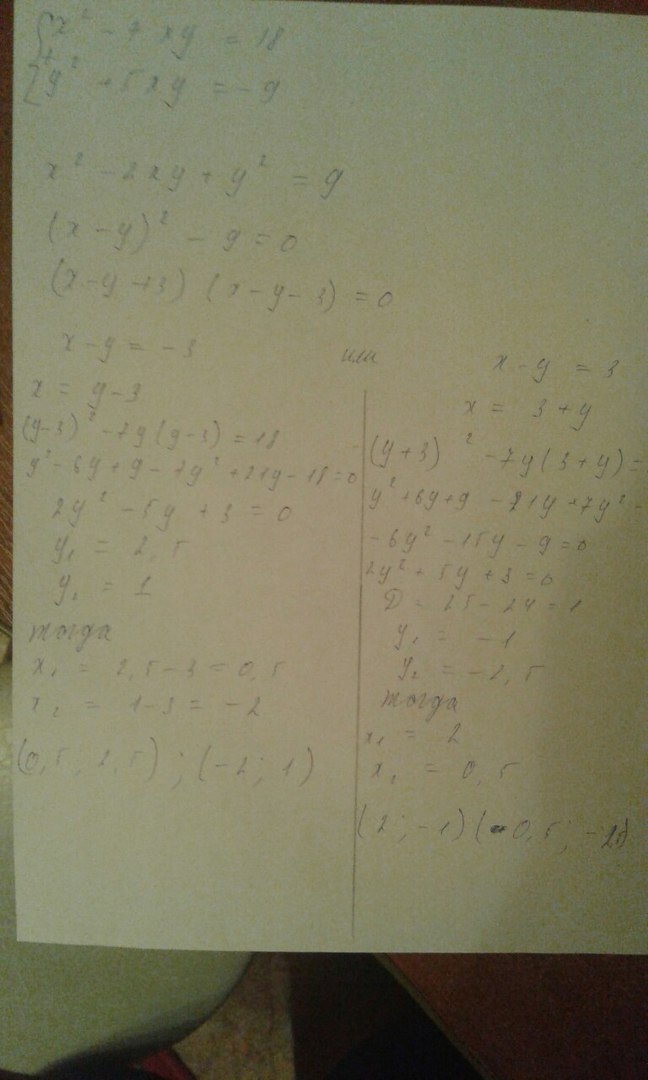 {x² - 7xy = 18
+
y² + 5xy = -9
x² - 2xy + y² = 9
(x-y)² - 9 = 0
(x-y+3) (x-y-3) = 0
x-y = -3
или
x-y = 3
x = y-3
(y-3)² - 7y(y-3) = 18
y² - 6y + 9 - 7y² + 21y - 18 = 0
2y² - 5y + 3 = 0
y₁ = 2,5
y₂ = 1
тогда
x₁ = 2,5-3 = 0,5
x₂ = 1-3 = -2
(0,5; 2,5) ; (-2; 1)
x = 3+y
(y+3)² - 7y(3+y) =
y² + 6y + 9 - 21y + 7y² -
-6y² - 15y - 9 = 0
2y² + 5y + 3 = 0
D = 25 - 24 = 1
y₁ = -1
y₂ = -2,5
тогда
x₁ = 2
x₂ = 0,5
(2; -1) (-0,5; -2,5)